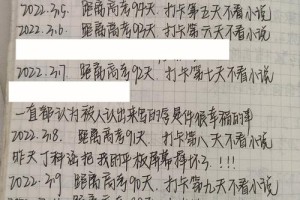 2022.3.5. 距离高考94天,打卡第五天不看小说
2022.3.6 距离高考93天,打卡第六天不看小说
2022.3.7 距离高考92天,打卡第七天不看小说
一直都认为被人认出来写的字是件很幸福的事
2022.3.8. 距离高考91天,打卡第八天不看小说
昨天丁科治把我的平板屏幕摔坏了!!!
2022.3.9 距离高考90天,打卡第九天不看小说